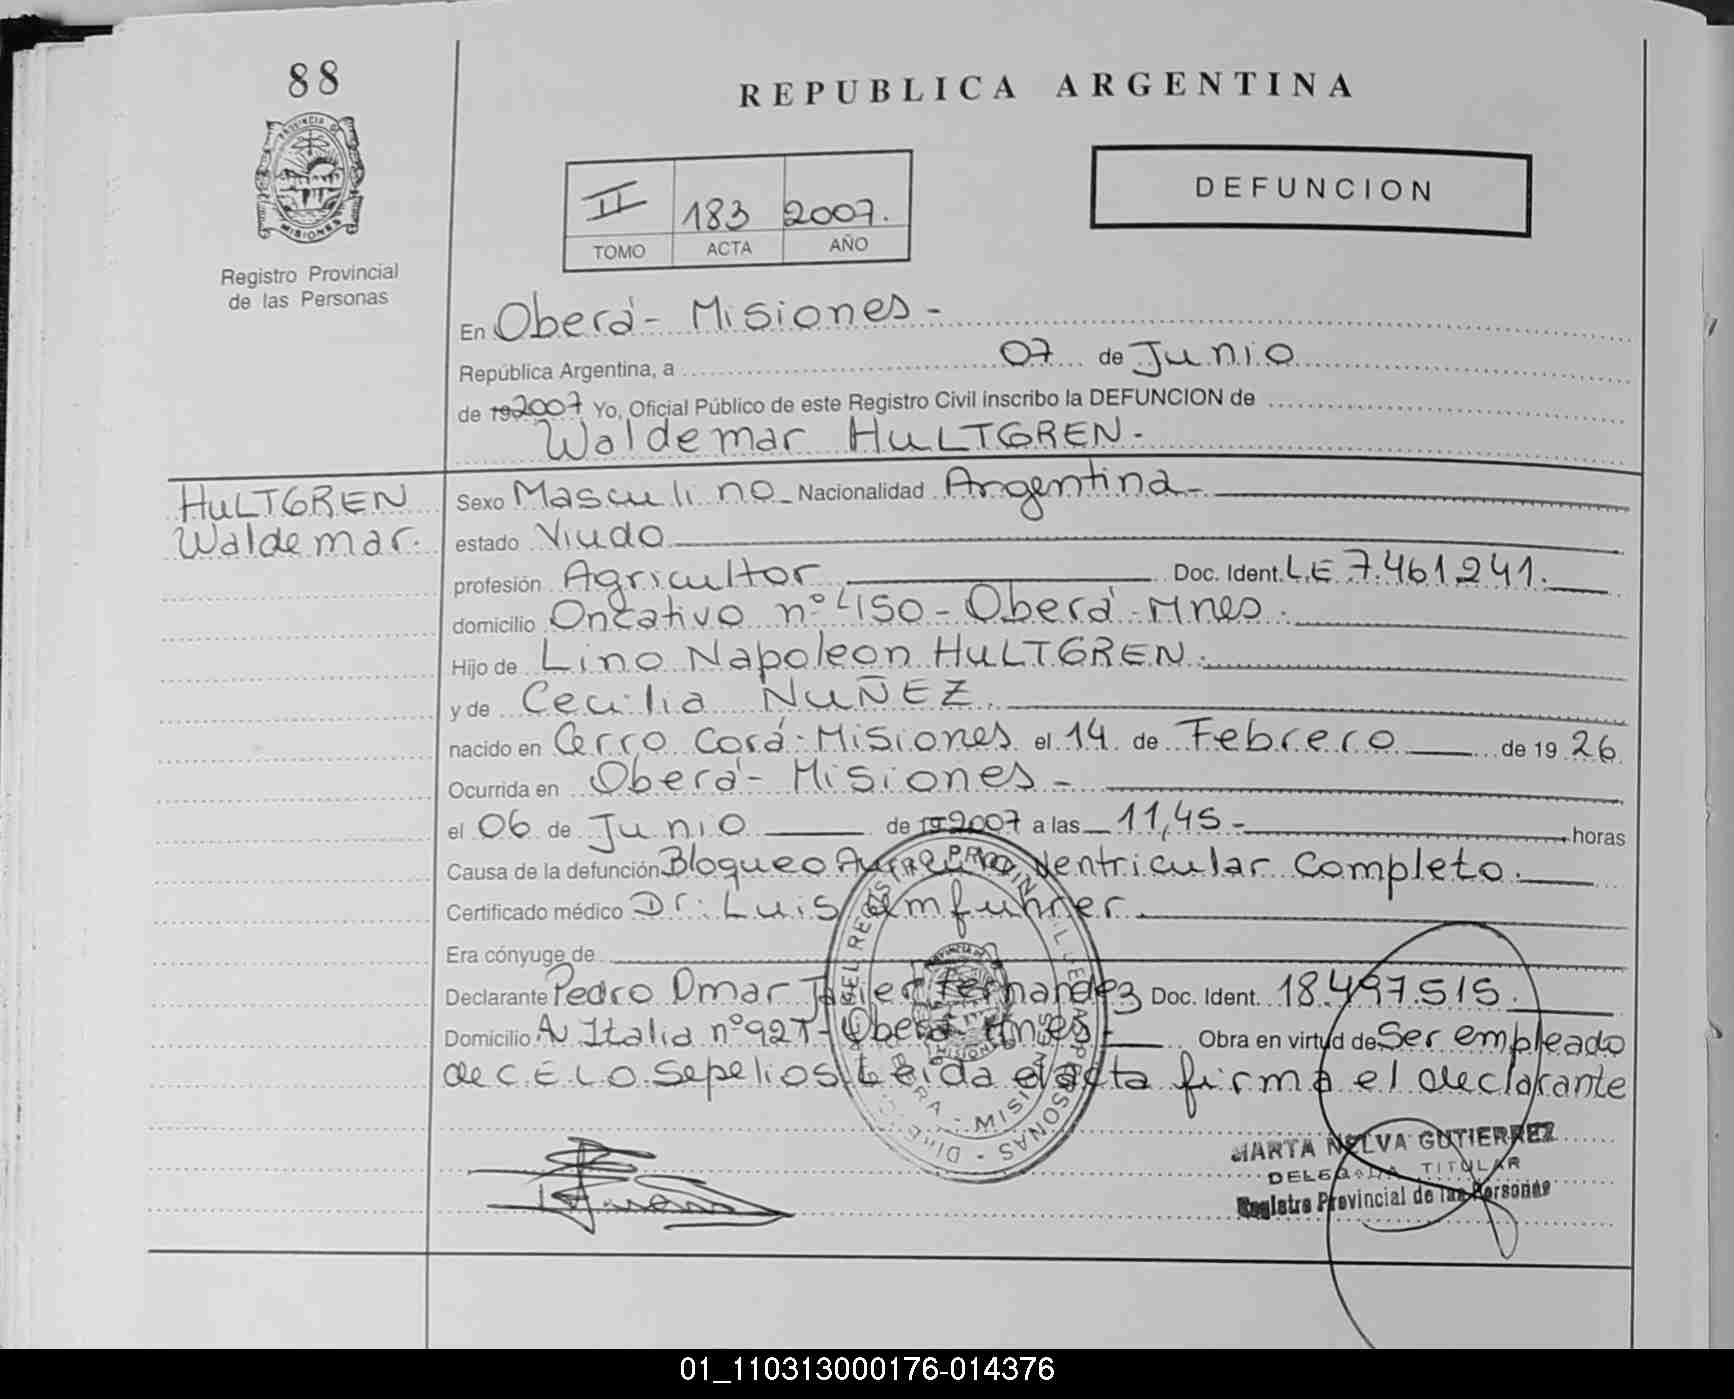 88
REPUBLICA ARGENTINA
PROVINCIA DE
MISIONES
Registro Provincial
de las Personas
DEFUNCION
II 183 2007.
TOMO ACTA AÑO
En Oberá - Misiones -
República Argentina, a 07 de Junio
de 19 2007 Yo, Oficial Público de este Registro Civil inscribo la DEFUNCION de
Waldemar HULTGREN -
HULTGREN
Waldemar.
Sexo Masculino - Nacionalidad Argentina -
estado Viudo
profesión Agricultor Doc. Ident. L.E 7.461.241.
domicilio Oncativo nº 450 - Oberá - Mnes.
Hijo de Lino Napoleon HULTGREN.
y de Cecilia NUÑEZ.
nacido en Cerro Corá - Misiones el 14 de Febrero de 19 26
Ocurrida en Oberá - Misiones -
el 06 de Junio de 19 2007 a las 11,45 - horas
Causa de la defunción Bloqueo Auriculo Ventricular Completo.
Certificado médico Dr: Luis
Era cónyuge de
Declarante Pedro Omar Javier Fernandez Doc. Ident. 18.497.515.
Domicilio Av Italia nº 927 - Oberá Mnes - Obra en virtud de Ser empleado
de C.E.L.O. Sepelios. Leida el acta firma el declarante
MARTA NELVA GUTIERREZ
DELEGADA TITULAR
Registro Provincial de las Personas
01_110313000176-014376